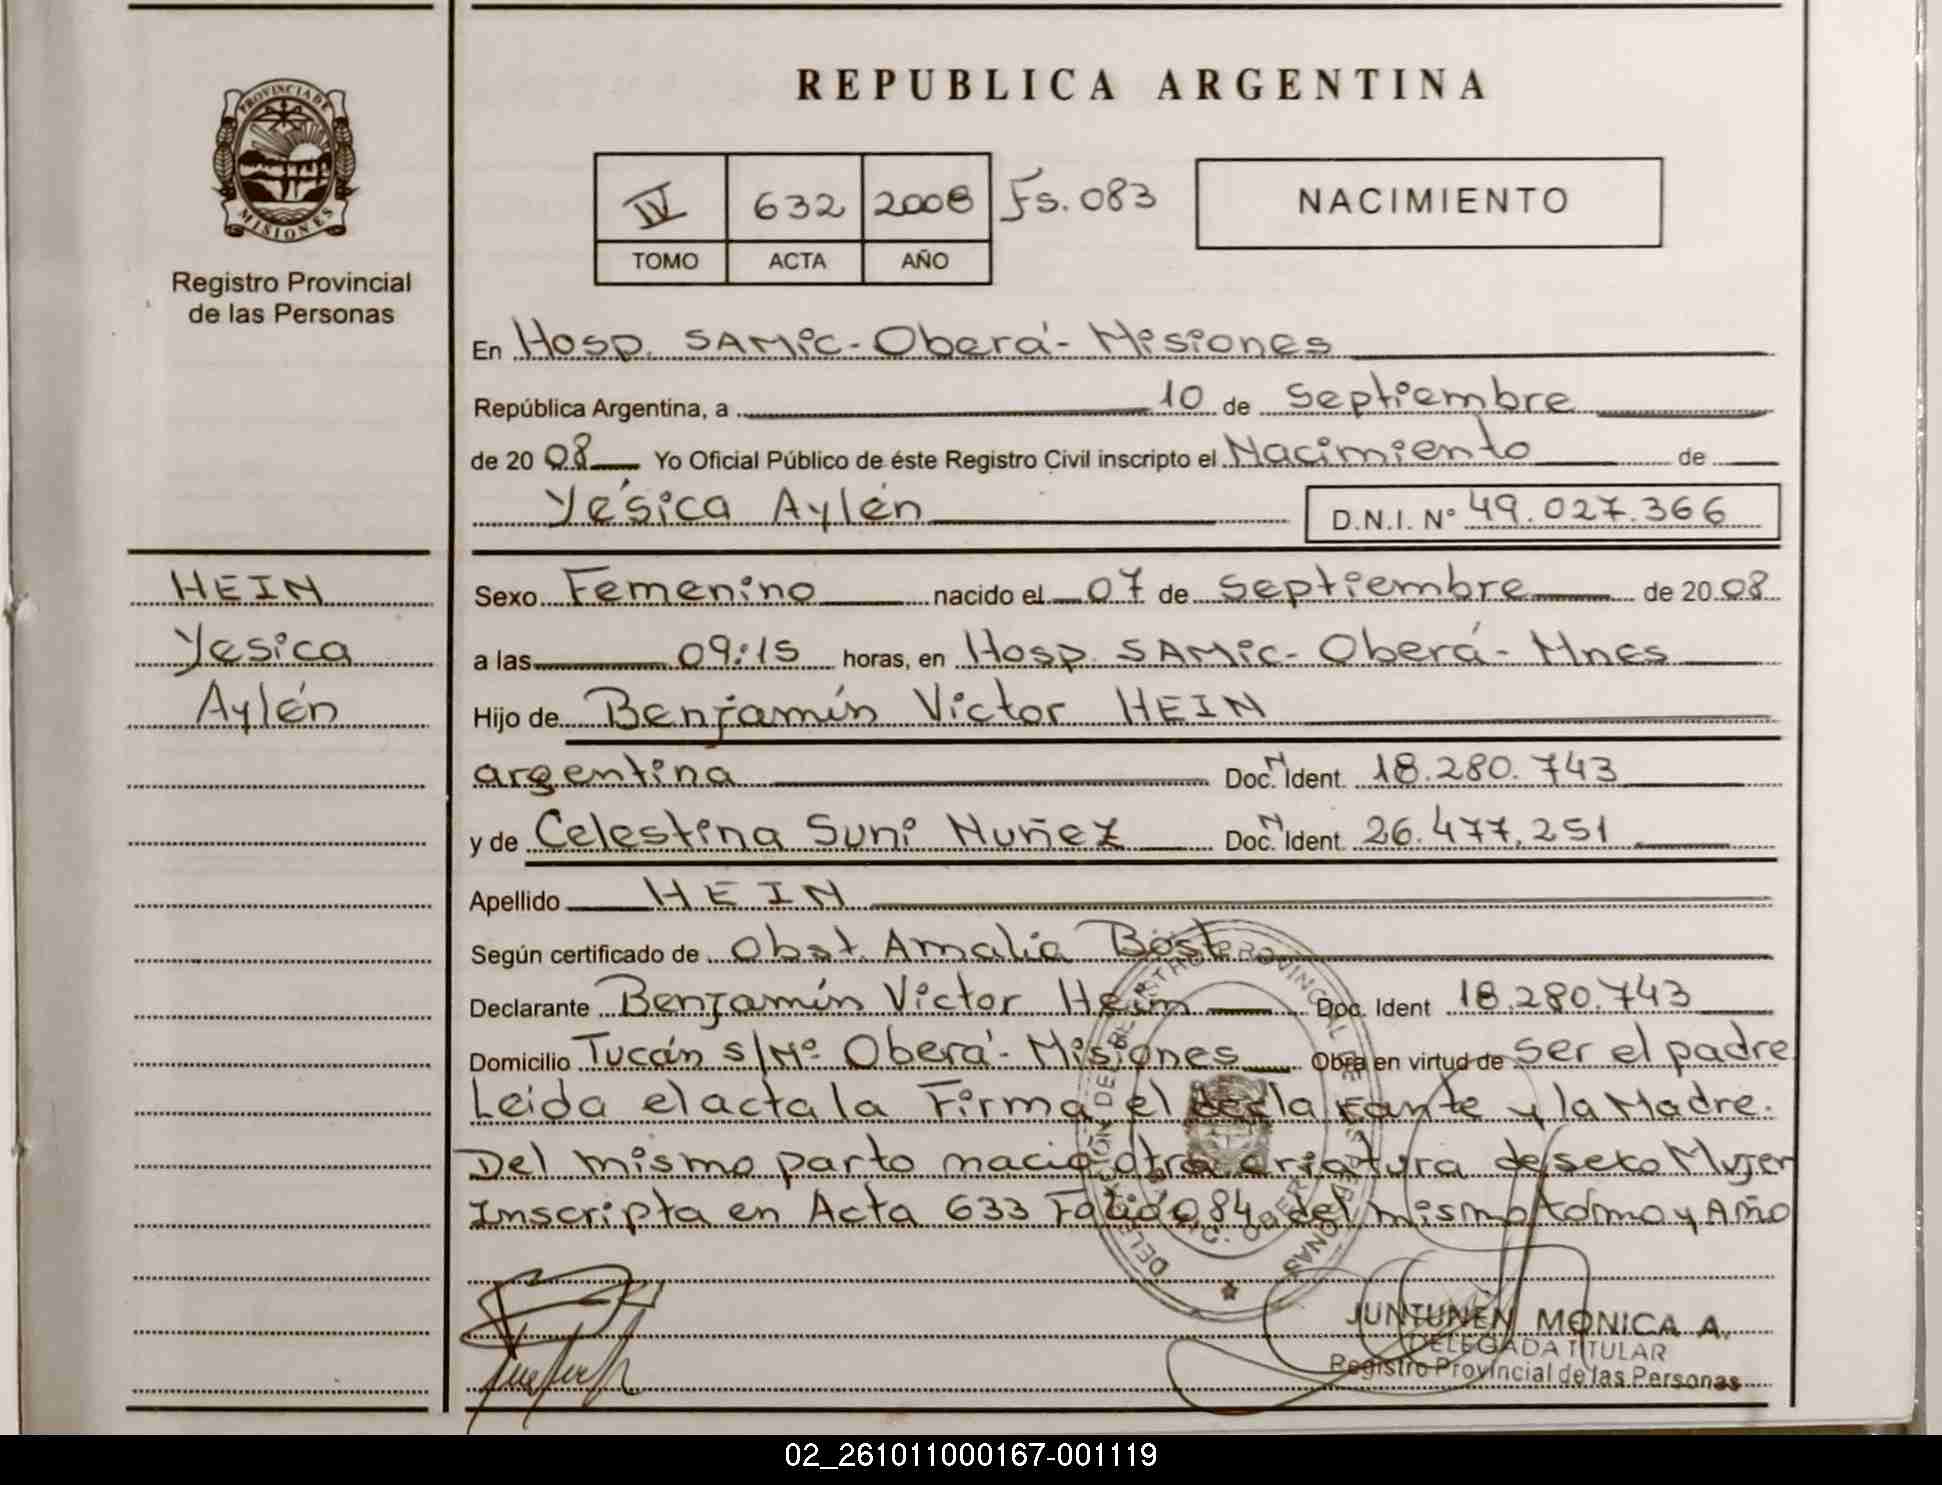 PROVINCIA DE
MISIONES
Registro Provincial
de las Personas
HEIN
Yesica
Aylén
REPUBLICA ARGENTINA
IV 632 2008 Fs. 083
TOMO ACTA AÑO
NACIMIENTO
En Hosp. SAMic-Oberá-Misiones
República Argentina, a 10 de Septiembre
de 20 08 Yo Oficial Público de éste Registro Civil inscripto el Nacimiento de
Yésica Aylén D.N.I. Nº 49.027.366
Sexo Femenino nacido el 07 de Septiembre de 20 08
a las 09:15 horas, en Hosp. SAMic-Oberá-Mnes
Hijo de Benjamín Victor HEIN
argentina Doc. N Ident. 18.280.743
y de Celestina Suni Nuñez Doc. N Ident. 26.477.251
Apellido HEIN
Según certificado de Obst. Amalia Böst
Declarante Benjamín Victor Hein Doc. Ident 18.280.743
Domicilio Tucán s/Nº Oberá-Misiones Obra en virtud de ser el padre
Leida el acta la Firma el declarante y la Madre.
Del mismo parto nacio otra criatura de sexo Mujer
Inscripta en Acta 633 Folio 084 del mismo tomo y Año
JUNTUNEN MONICA A.
DELEGADA TITULAR
Registro Provincial de las Personas
02_261011000167-001119